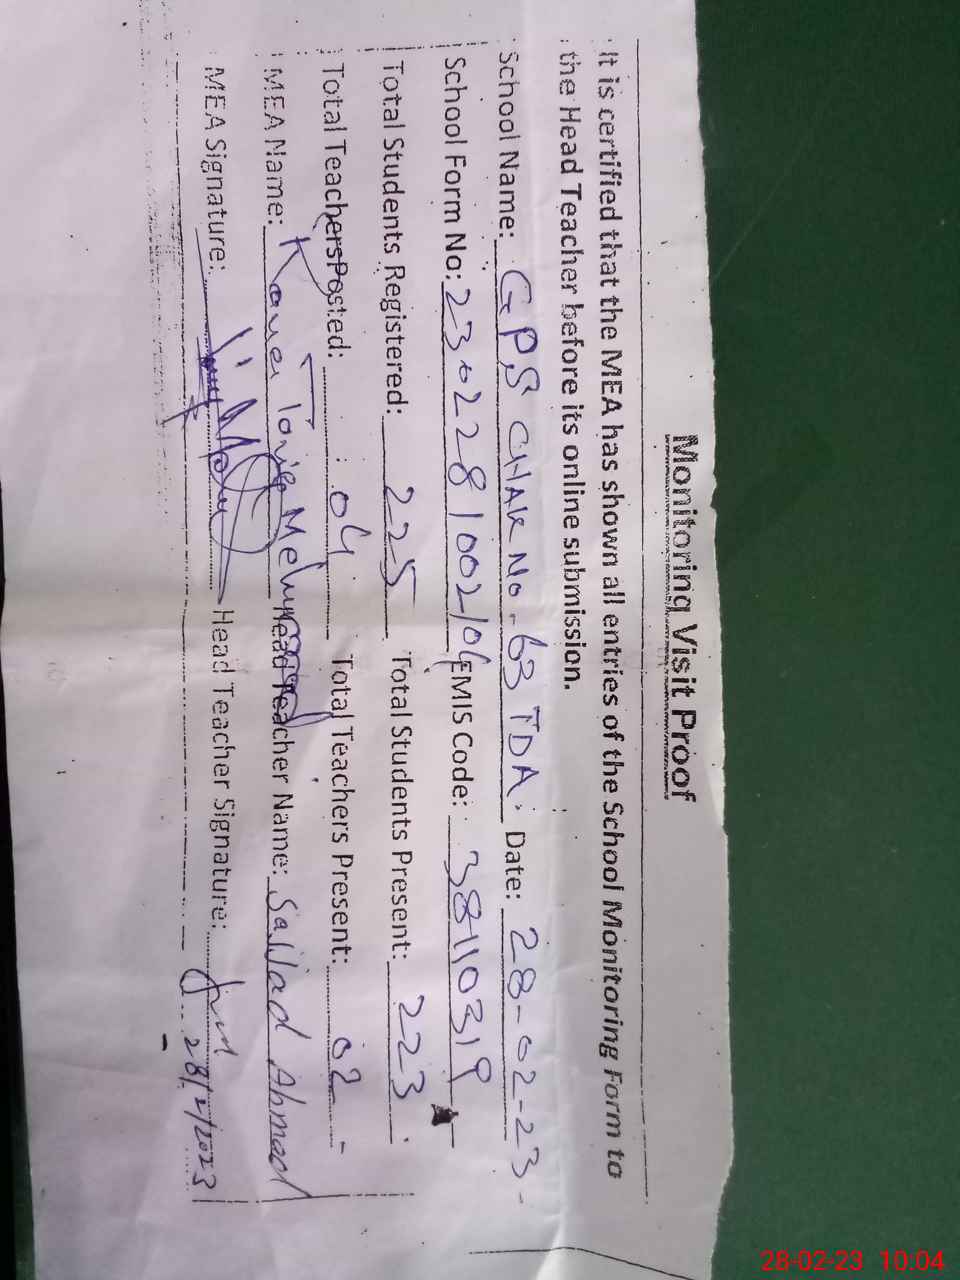 Monitoring Visit Proof
It is certified that the MEA has shown all entries of the School Monitoring Form to
the Head Teacher before its online submission.
School Name: GPS CHAK No. 63 TDA. Date: 28-02-23-
School Form No: 2302281002104 EMIS Code: 38110319
Total Students Registered: 225 Total Students Present: 223
Total Teachers Posted: 04 Total Teachers Present: 02
MEA Name: Head Teacher Name: Sajjad Ahmad
MEA Signature: Head Teacher Signature:
28/2/2023
28-02-23 10:04